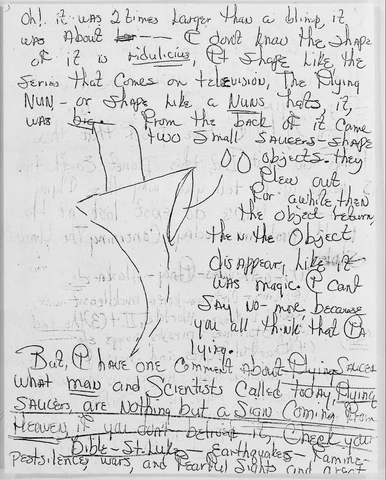 Oh! it was 2 times Larger than a blimp, it
was About ---- I don't know the shape
of it is ridulicius, It shape Like the
Series that comes on television, The Flying
NUN- or shape Like a Nuns hats it,
was big. From the back of it came
two small saucers-shape
OO objects. they
Flew out
For awhile then
the object return,
then the Object
disappear, Like it
was magic. I cant
say no-more because
you all think that I a
lying.
But, I have one comment About Flying Saucer
what man and Scientists Called today, Flying
Saucers are nothing but a sign Coming From
Heaven, if you don't believe it, Check your
Bible-St. Luke - Earthquakes- Famine
Pestilence, wars, and Fearful sights and great